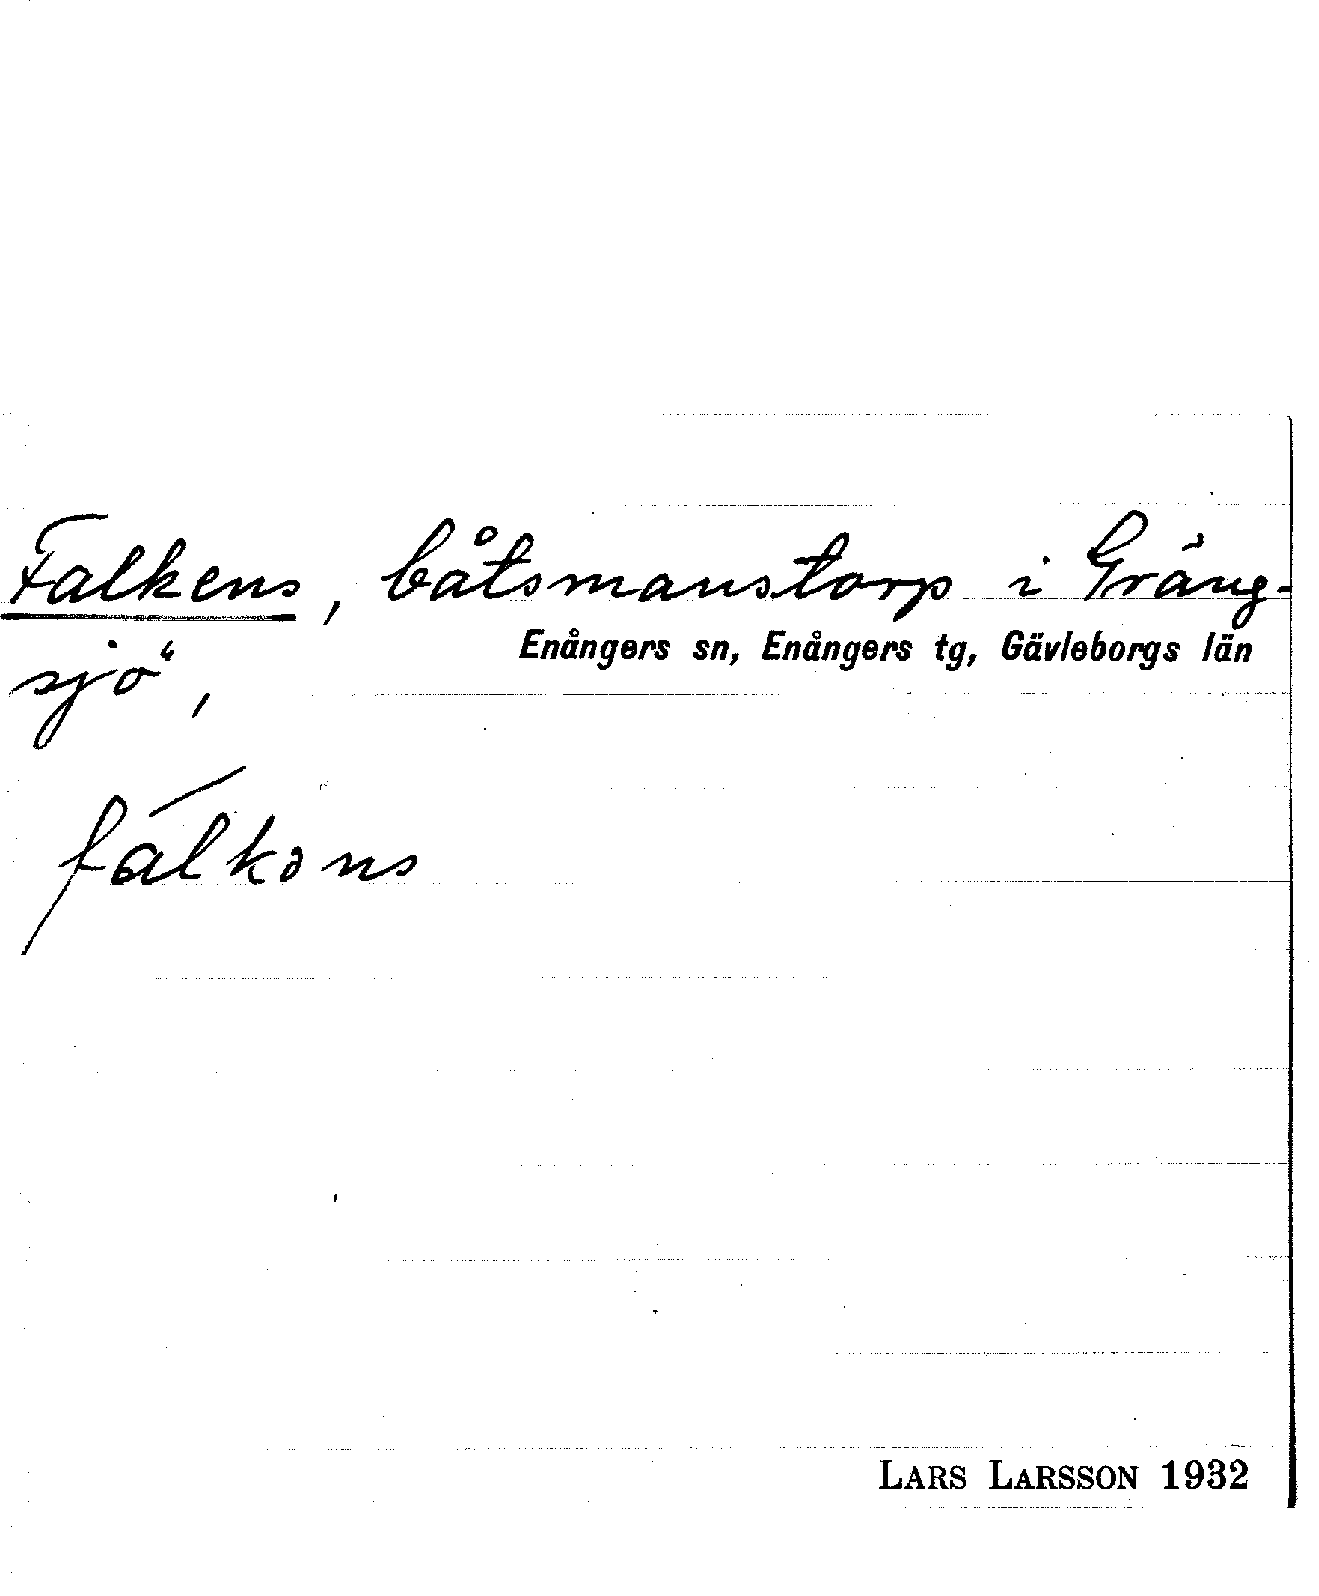 Falkens, båtsmanstorp i Gräng-
sjö,
Enångers sn, Enångers tg, Gävleborgs län
fálkəns
LARS LARSSON 1932